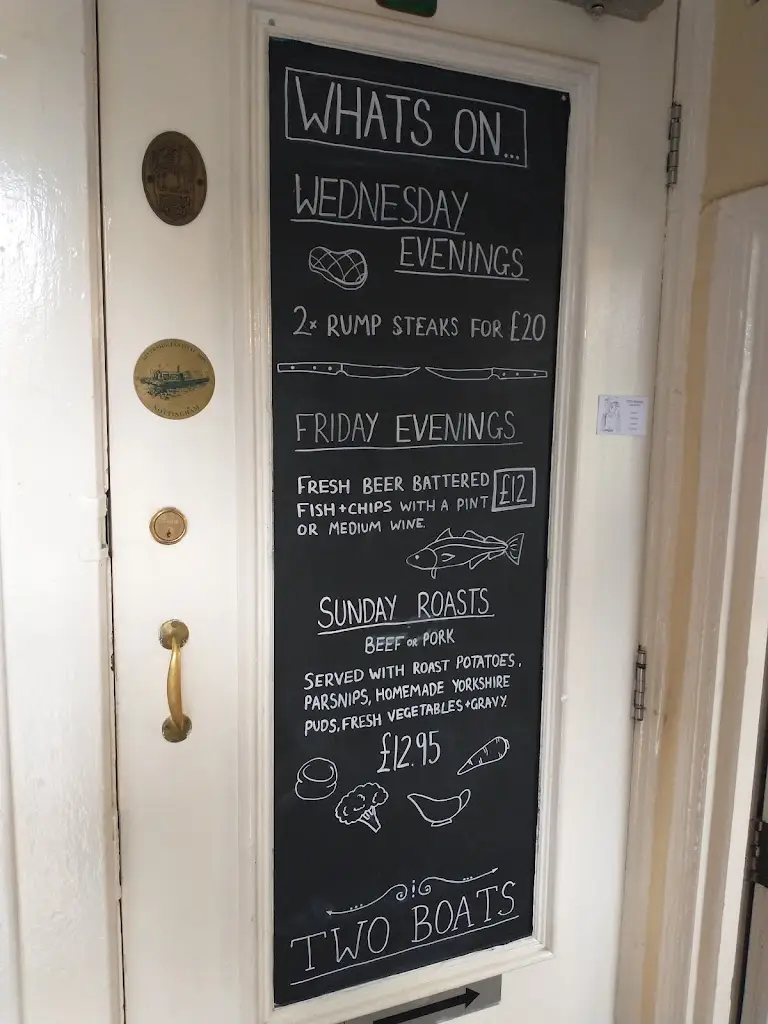 WHATS ON...
WEDNESDAY
EVENINGS
2x RUMP STEAKS FOR £20
FRIDAY EVENINGS
FRESH BEER BATTERED £12
FISH + CHIPS WITH A PINT
OR MEDIUM WINE
SUNDAY ROASTS
BEEF or PORK
SERVED WITH ROAST POTATOES,
PARSNIPS, HOMEMADE YORKSHIRE
PUDS, FRESH VEGETABLES + GRAVY.
£12.95
TWO BOATS
NOTTINGHAM